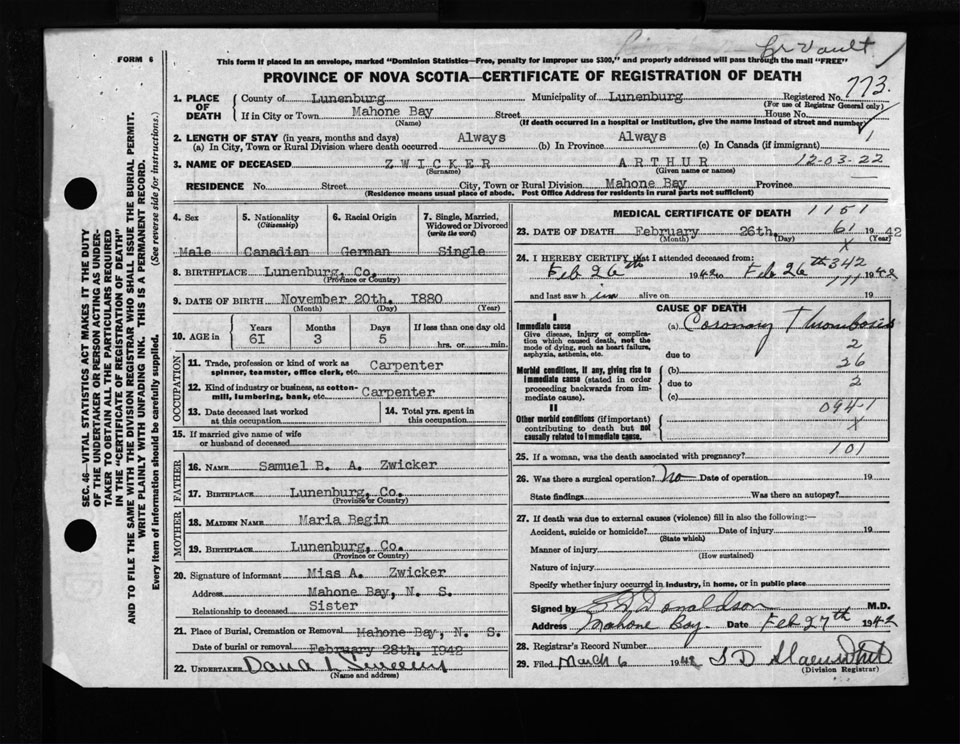 Cr Vault
FORM 6
This form if placed in an envelope, marked "Dominion Statistics—Free, penalty for improper use $300," and properly addressed will pass through the mail "FREE"
PROVINCE OF NOVA SCOTIA—CERTIFICATE OF REGISTRATION OF DEATH
773.
1. PLACE OF DEATH
County of Lunenburg Municipality of Lunenburg Registered No.
(For use of Registrar General only)
If in City or Town Mahone Bay Street House No.
(Name) (If death occurred in a hospital or institution, give the name instead of street and number)
2. LENGTH OF STAY (in years, months and days)
(a) In City, Town or Rural Division where death occurred Always (b) In Province Always (c) In Canada (if immigrant)
1
3. NAME OF DECEASED ZWICKER ARTHUR 12-03-22
(Surname) (Given name or names)
RESIDENCE No. Street City, Town or Rural Division Mahone Bay Province
(Residence means usual place of abode. Post Office Address for residents in rural parts not sufficient)
4. Sex
Male
5. Nationality
(Citizenship)
Canadian
6. Racial Origin
German
7. Single, Married, Widowed or Divorced
(write the word)
Single
8. BIRTHPLACE Lunenburg, Co.
(Province or Country)
9. DATE OF BIRTH November 20th. 1880
(Month) (Day) (Year)
10. AGE in
Years Months Days If less than one day old
61 3 5 hrs. or min.
OCCUPATION
11. Trade, profession or kind of work as spinner, teamster, office clerk, etc. Carpenter
12. Kind of industry or business, as cotton-mill, lumbering, bank, etc. Carpenter
13. Date deceased last worked at this occupation
14. Total yrs. spent in this occupation
15. If married give name of wife or husband of deceased
FATHER
16. NAME Samuel B. A. Zwicker
17. BIRTHPLACE Lunenburg, Co.
(Province or Country)
MOTHER
18. MAIDEN NAME Maria Begin
19. BIRTHPLACE Lunenburg, Co.
(Province or Country)
20. Signature of informant Miss A. Zwicker
Address Mahone Bay, N. S.
Relationship to deceased Sister
21. Place of Burial, Cremation or Removal Mahone Bay, N. S.
Date of burial or removal February 28th. 1942
22. UNDERTAKER
(Name and address)
MEDICAL CERTIFICATE OF DEATH 1151
23. DATE OF DEATH February 26th. 61 1942
(Month) (Day) X (Year)
24. I HEREBY CERTIFY that I attended deceased from:
Feb 26th 1942 to Feb 26th 1942
342
111
and last saw h im alive on 19
CAUSE OF DEATH
I
Immediate cause
Give disease, injury or complication which caused death, not the mode of dying, such as heart failure, asphyxia, asthenia, etc.
(a) Coronary Thrombosis
2
due to
Morbid conditions, if any, giving rise to immediate cause (stated in order proceeding backwards from immediate cause).
26
(b)
due to 2
(c)
II
Other morbid conditions (if important) contributing to death but not causally related to immediate cause.
094-1
X
25. If a woman, was the death associated with pregnancy? 101
26. Was there a surgical operation? No Date of operation 19
State findings Was there an autopsy?
27. If death was due to external causes (violence) fill in also the following:—
Accident, suicide or homicide? Date of injury 19
(State which)
Manner of injury
(How sustained)
Nature of injury
Specify whether injury occurred in industry, in home, or in public place
Signed by Donaldson M.D.
Address Mahone Bay. Date Feb 27th 1942
28. Registrar's Record Number
29. Filed March 6 1942
(Division Registrar)
SEC. 46—VITAL STATISTICS ACT MAKES IT THE DUTY
OF THE UNDERTAKER OR PERSON ACTING AS UNDER-
TAKER TO OBTAIN ALL THE PARTICULARS REQUIRED
IN THE "CERTIFICATE OF REGISTRATION OF DEATH"
AND TO FILE THE SAME WITH THE DIVISION REGISTRAR WHO SHALL ISSUE THE BURIAL PERMIT.
WRITE PLAINLY WITH UNFADING INK. THIS IS A PERMANENT RECORD.
Every item of information should be carefully supplied. (See reverse side for instructions.)